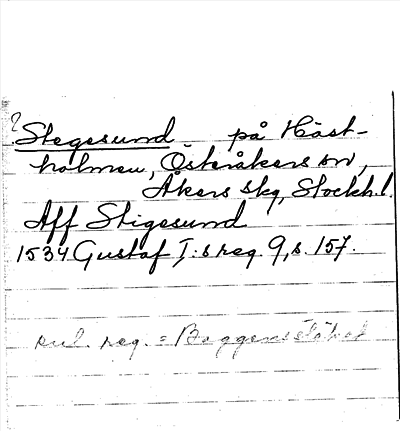 ? Stegesund på Häst-
holmen, Österåkers sn,
Åkers skg, Stockh. l.
Aff Stigesund
1534 Gustaf I:s reg. 9, s. 157.
enl. reg. = Baggensstäket